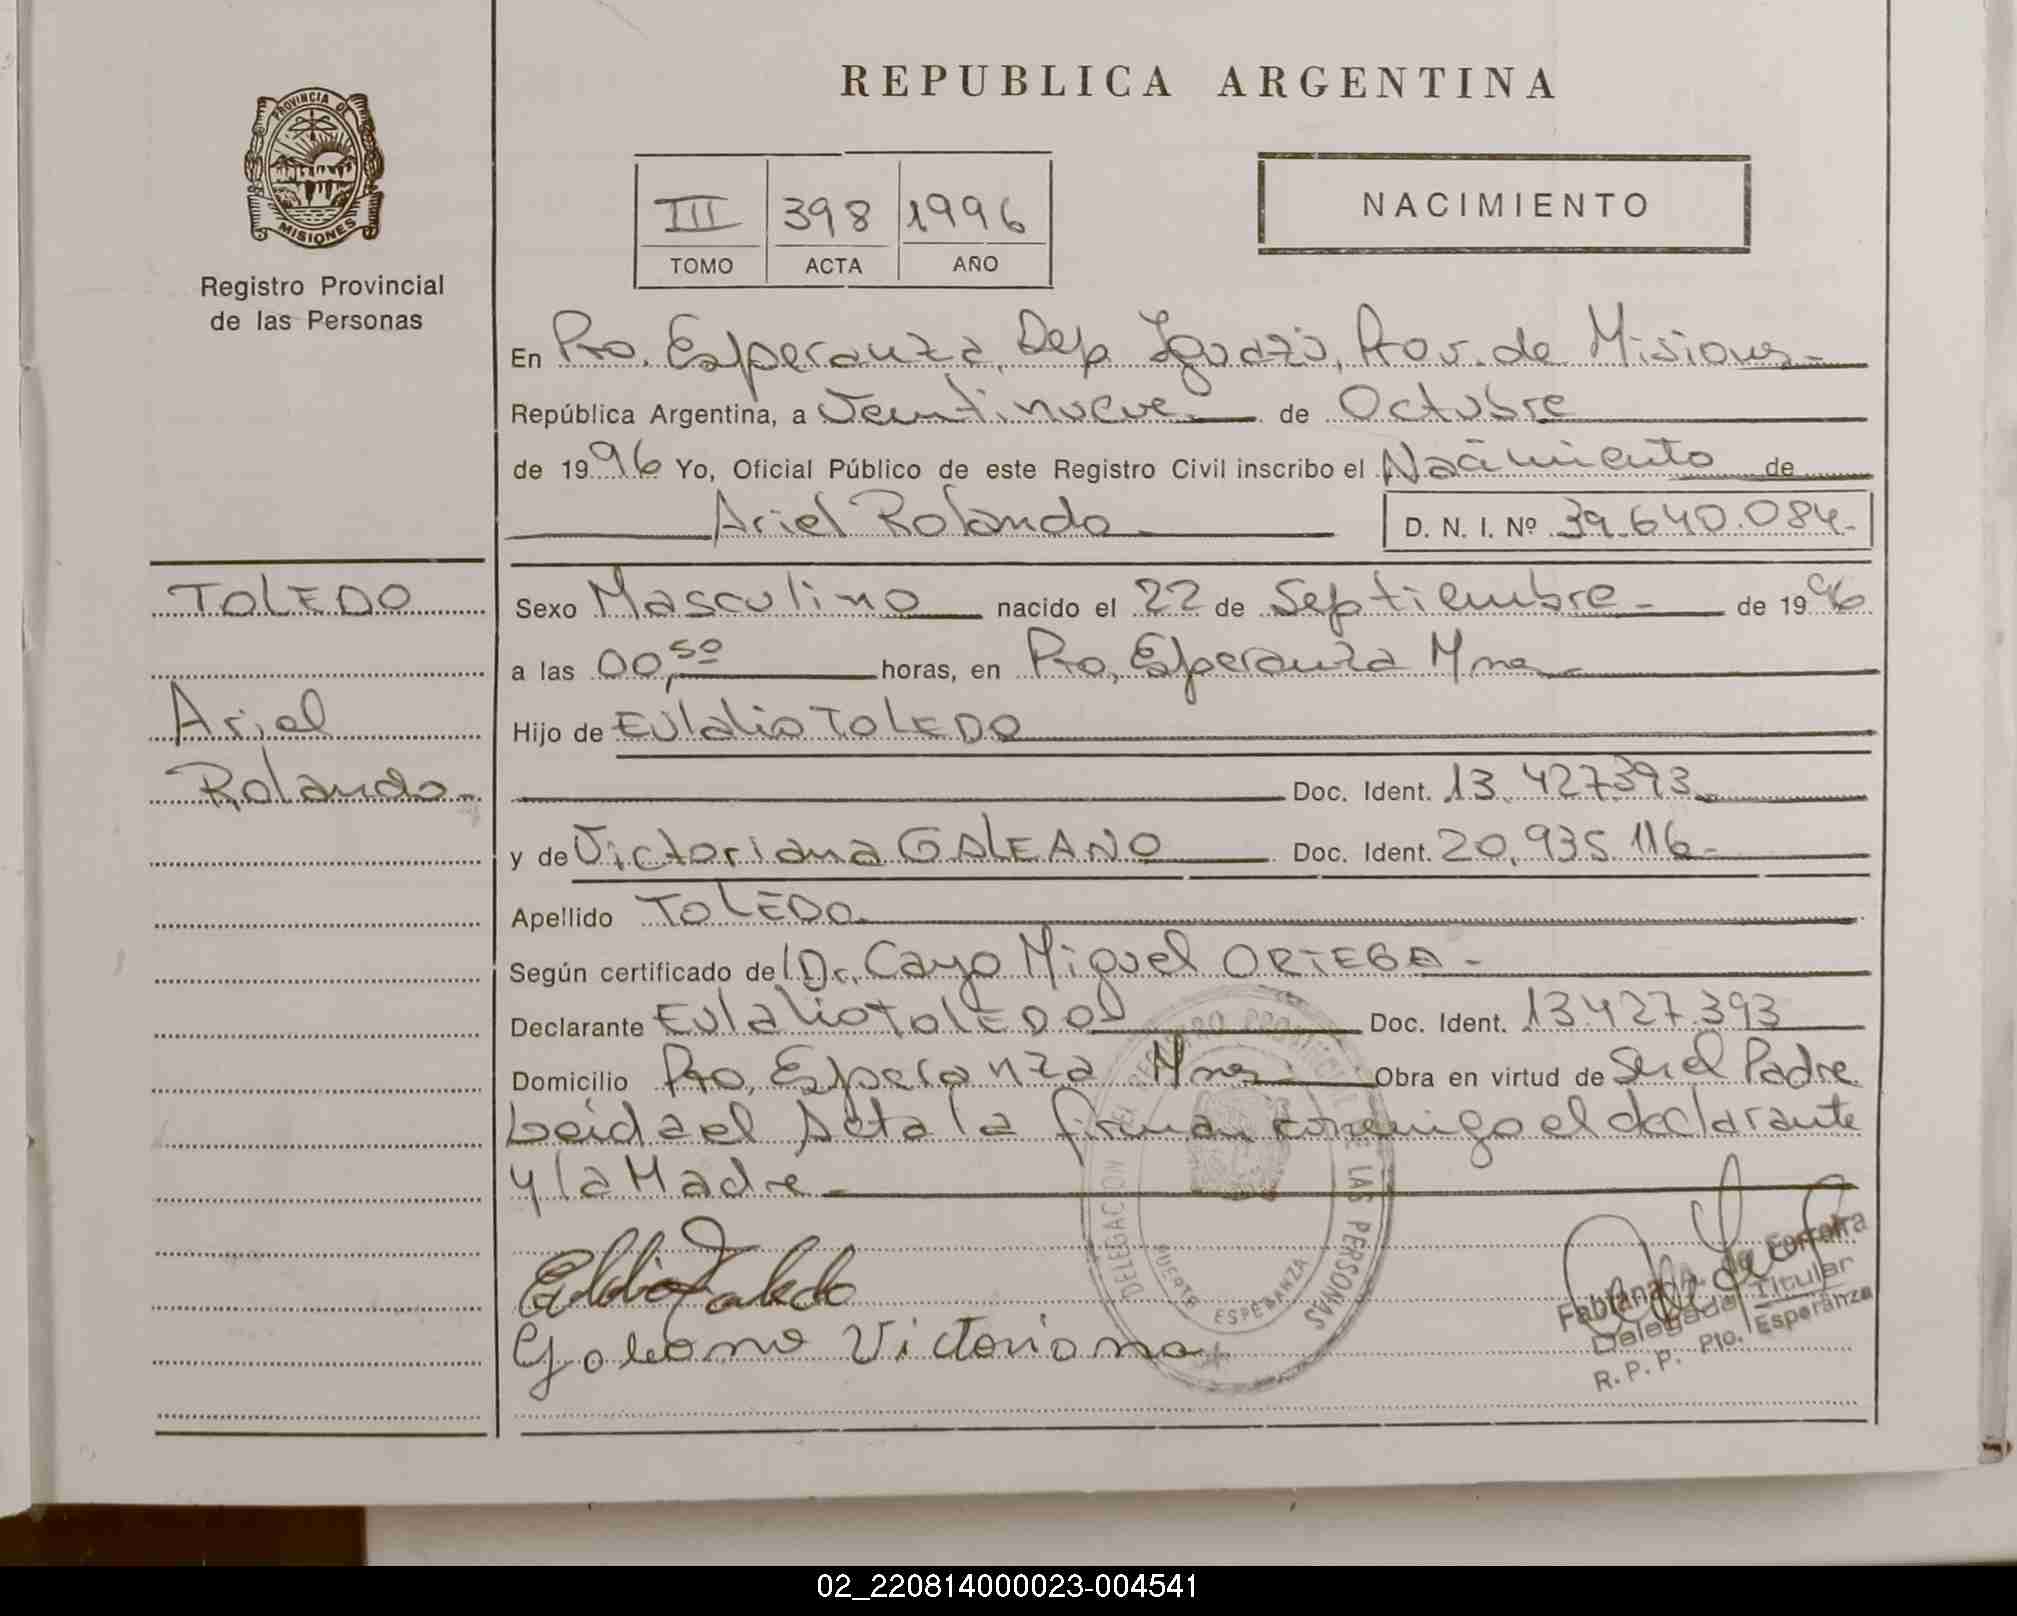 REPUBLICA ARGENTINA
PROVINCIA DE
MISIONES
Registro Provincial
de las Personas
III 398 1996
TOMO ACTA AÑO
NACIMIENTO
En Pto. Esperanza, Dep. Iguazú, Prov. de Misiones
República Argentina, a Veintinueve de Octubre
de 1996 Yo, Oficial Público de este Registro Civil inscribo el Nacimiento de
Ariel Rolando D. N. I. Nº 39.640.084.-
TOLEDO
Ariel
Rolando-
Sexo Masculino nacido el 22 de Septiembre- de 1996
a las 00,50 horas, en Pto, Esperanza Mnes
Hijo de Eulalio TOLEDO
Doc. Ident. 13.427393
y de Victoriana GALEANO Doc. Ident. 20.935.116-
Apellido TOLEDO
Según certificado de Dr. Cayo Miguel ORTEGA-
Declarante Eulalio TOLEDO Doc. Ident. 13427.393
Domicilio Pto, Esperanza Mnes Obra en virtud de Ser el Padre
Leida el Acta la firman conmigo el declarante
y la Madre-
Eulalio Toledo
Galeano Victoriana
DELEGACION DEL REGISTRO PROVINCIAL DE LAS PERSONAS
PUERTO ESPERANZA
Fabiana de Ferreira
Delegada Titular
R. P. P. Pto. Esperanza
02_220814000023-004541